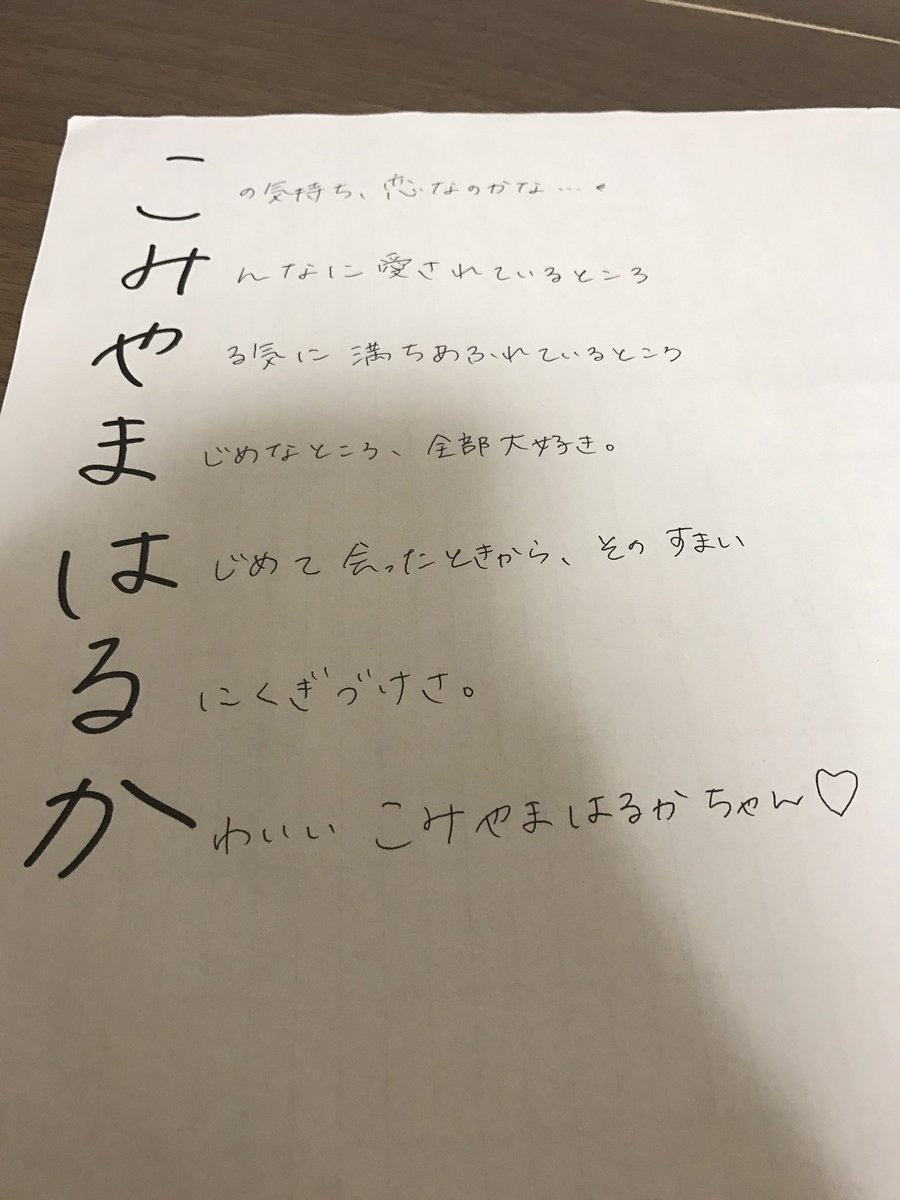 この気持ち、恋なのかな…
みんなに愛されているところ
やる気に満ちあふれているところ
まじめなところ、全部大好き。
はじめて会ったときから、そのすまい
るにくぎづけさ。
かわいいこみやまはるかちゃん♡